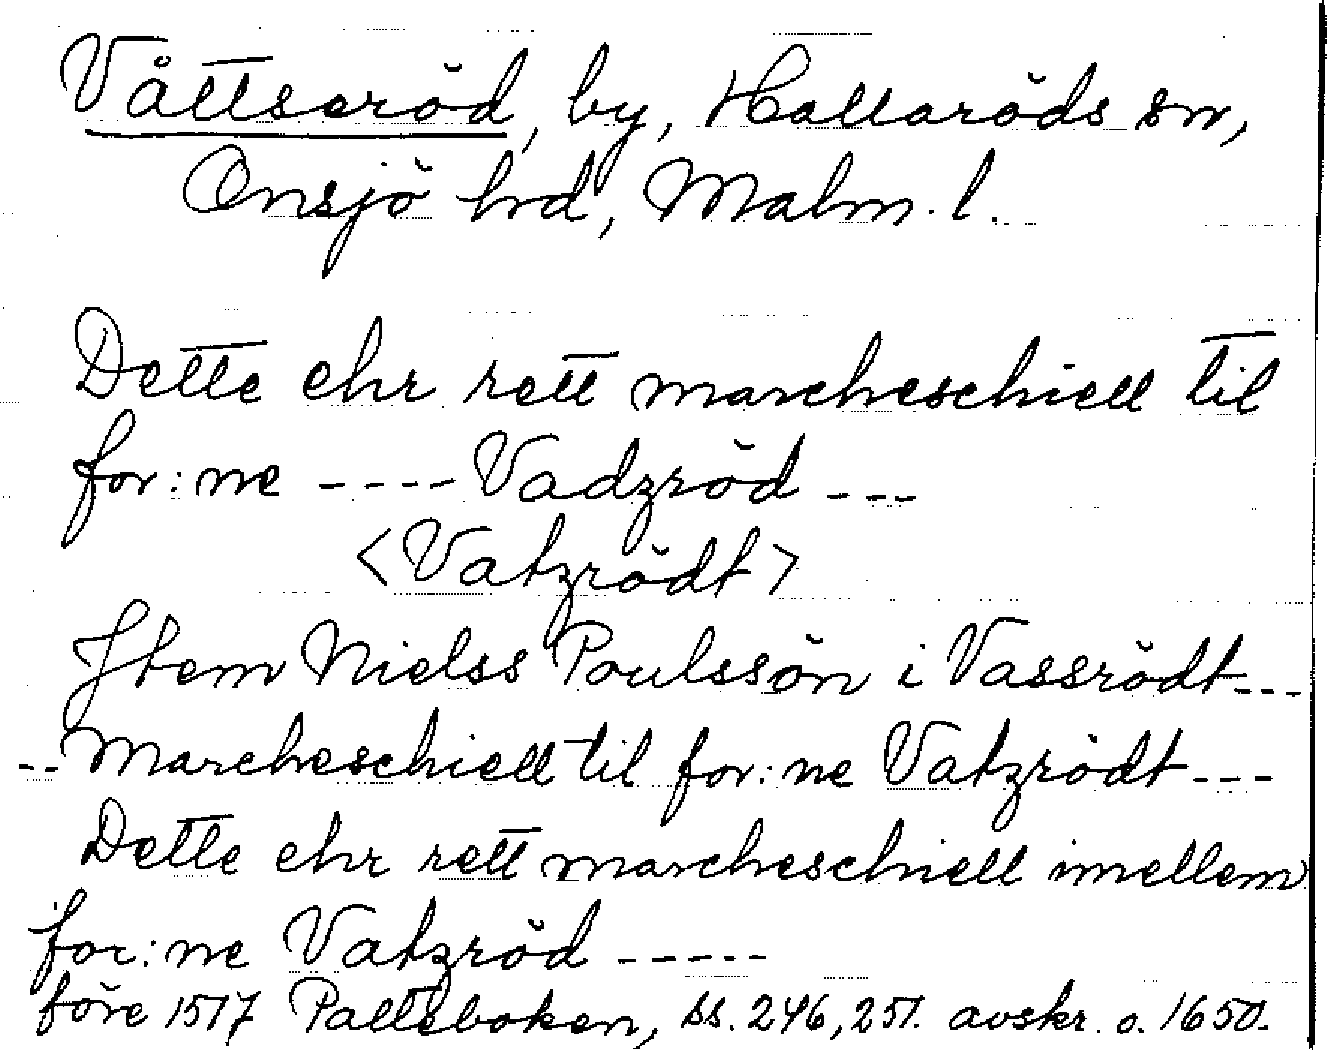 Våttseröd, by, Hallaröds sn,
Onsjö hrd, Malm. l.
Dette ehr rett marcheschiell til
for:ne ---- Vadzröd ---
<Vatzrödt>
Jtem Nielss Poulssön i Vassrödt---
--Marcheschiell til for:ne Vatzrödt---
Dette ehr rett marcheschiell imellem
for:ne Vatzröd -----
före 1517 Palteboken, ss. 246, 251. avskr. o. 1650.